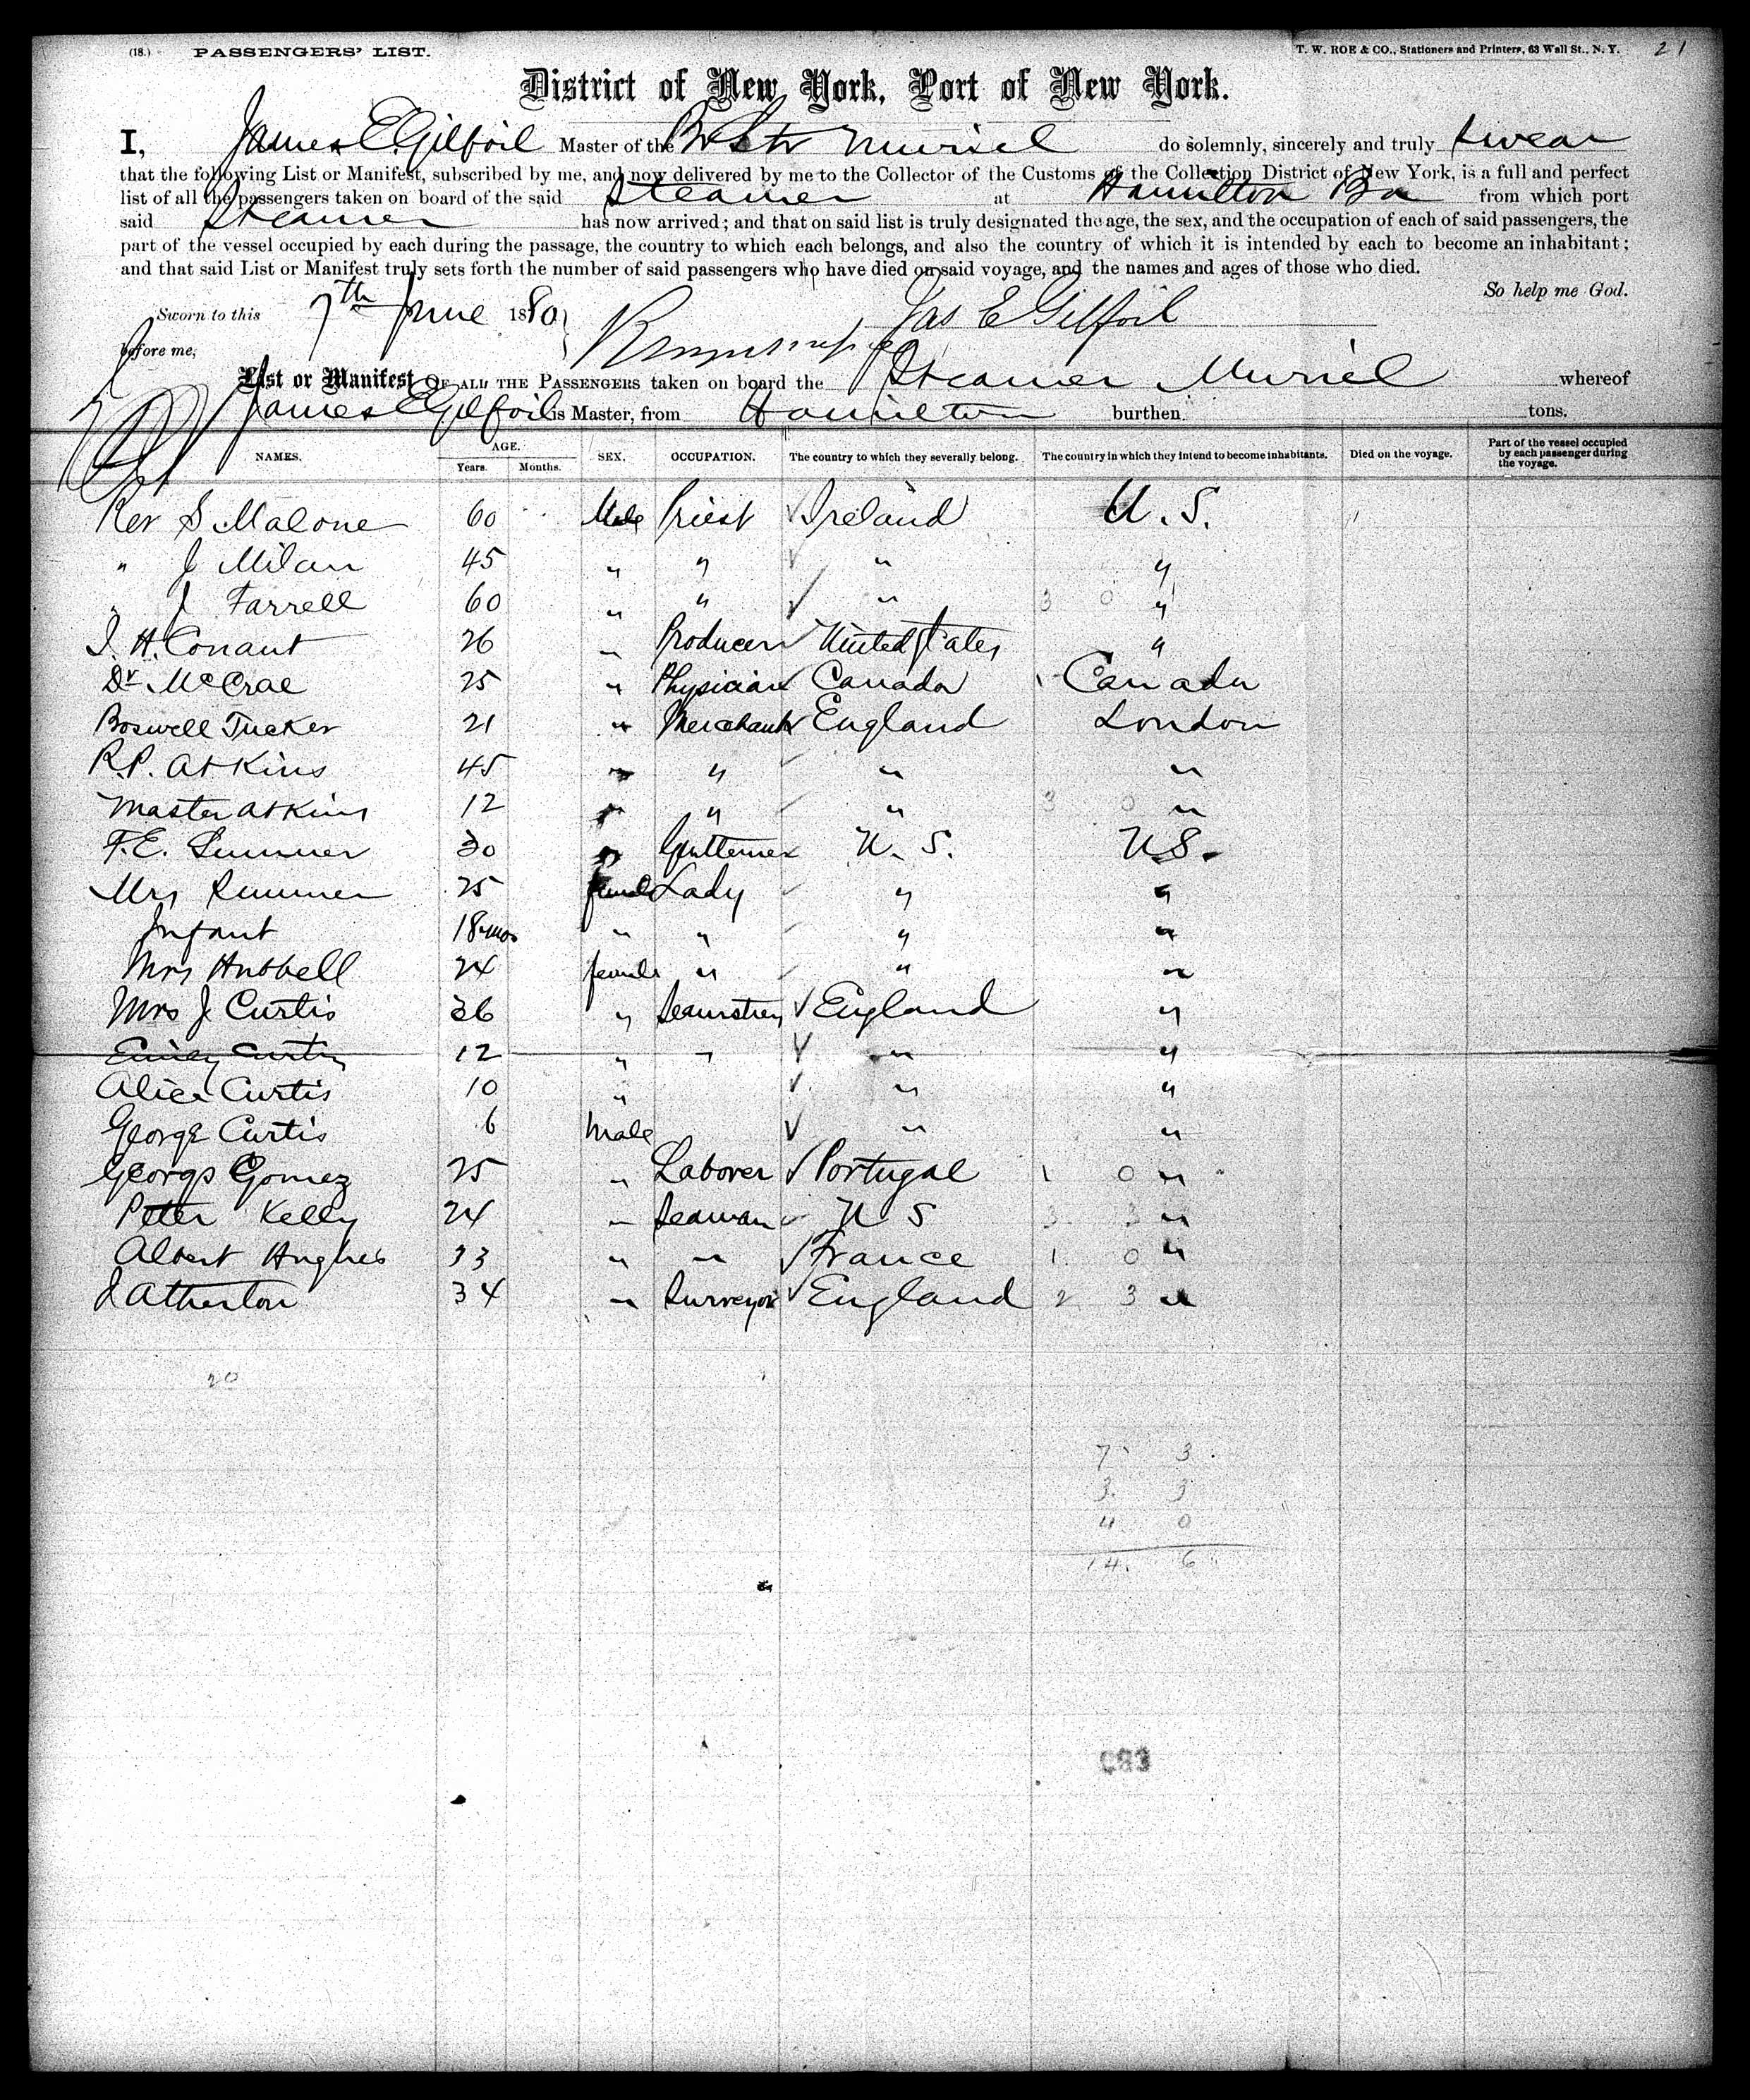 (18.) PASSENGERS' LIST. T. W. ROE & CO., Stationers and Printers, 63 Wall St., N. Y. 21
District of New York, Port of New York.
I, James E. Gilfoil Master of the Br Str Muriel do solemnly, sincerely and truly swear
that the following List or Manifest, subscribed by me, and now delivered by me to the Collector of the Customs of the Collection District of New York, is a full and perfect
list of all the passengers taken on board of the said Steamer at Hamilton Ba from which port
said Steamer has now arrived; and that on said list is truly designated the age, the sex, and the occupation of each of said passengers, the
part of the vessel occupied by each during the passage, the country to which each belongs, and also the country of which it is intended by each to become an inhabitant;
and that said List or Manifest truly sets forth the number of said passengers who have died on said voyage, and the names and ages of those who died.
So help me God.
Sworn to this 7th June 1880 Jas E Gilfoil
before me,
List or Manifest OF ALL THE PASSENGERS taken on board the Steamer Muriel whereof
James E Gilfoil is Master, from Hamilton burthen tons.
NAMES. AGE. Years. Months. SEX. OCCUPATION. The country to which they severally belong. The country in which they intend to become inhabitants. Died on the voyage. Part of the vessel occupied by each passenger during the voyage.
Rev S Malone 60 Male Priest Ireland U.S.
" J Milan 45 " " " "
" J Farrell 60 " " " 3 0 "
I. H. Conant 26 " Producer United States "
Dr McCrae 25 " Physician Canada 1 Canada
Boswell Tucker 21 " Merchant England London
R.P. Atkins 45 " " " "
Master Atkins 12 " " " 3 0 "
F.E. Sumner 30 " Gentleman U.S. U.S.
Mrs Sumner 25 female Lady " "
Infant 18 mos " " " "
Mrs Hubbell 24 female " " "
Mrs J Curtis 36 " Seamstress England "
Curtis 12 " " " "
Alice Curtis 10 " " "
George Curtis 6 Male " "
George Gomez 25 " Laborer Portugal 1 0 "
Peter Kelly 24 " Seaman U S 3 3 "
Albert Hughes 33 " " France 1 0 "
J Atherton 34 " Surveyor England 2 3 "
20
7 3
3 3
4 0
14. 6
083